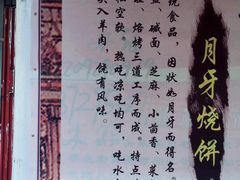 月牙烧饼
统食品，因状如月牙而得名。
盐、碱面、芝麻、小茴香、菜
、焙烤三道工序而成。特点
松空软。热吃凉吃均可，吃水
夹入羊肉，饶有风味。